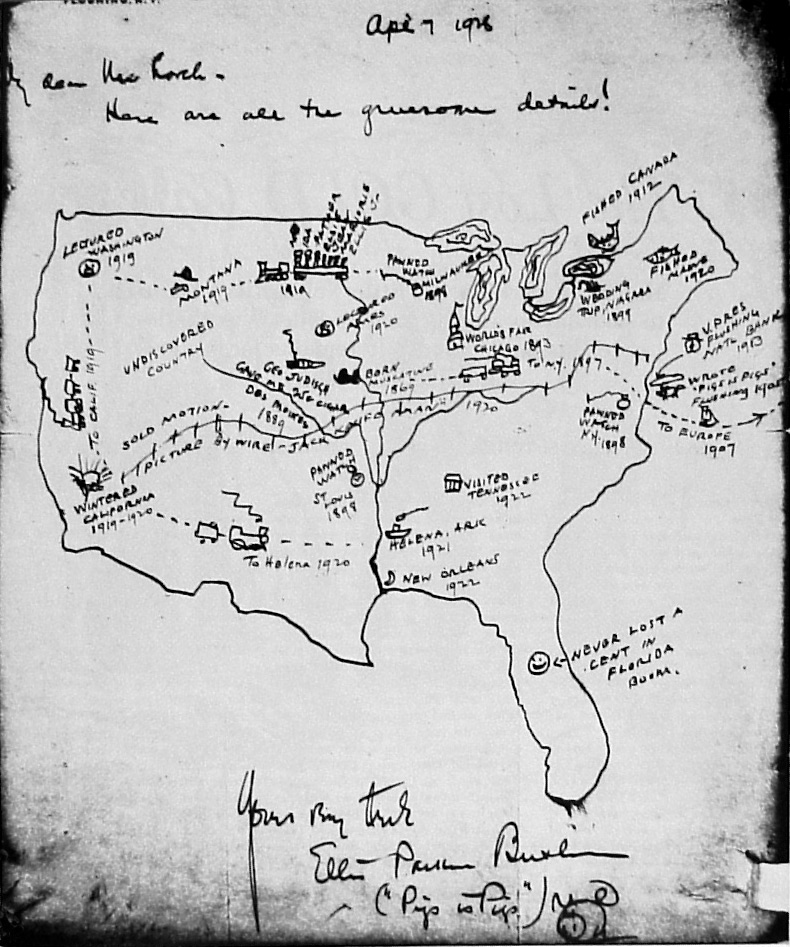 FLUSHING, N.Y.
Apr 7 1928
My dear
Here are all the gruesome details!
FISHED CANADA
1912
LECTURED
WASHINGTON
1919
MONTANA
1919
1919
PAWNED
WATCH
MILWAUKEE
1898
FISHED
MAINE
1920
WEDDING
TRIP NIAGARA
1899
V. PRES
FLUSHING
NAT'L BANK
1913
LECTURED
1920
WORLD'S FAIR
CHICAGO 1893
UNDISCOVERED
COUNTRY
TO CALIF. 1919
GEO JUDISCH
GAVE ME 25¢ CIGAR
DES MOINES
1889
BORN
MUSCATINE
1869
TO N.Y. 1897
WROTE
"PIGS IS PIGS"
FLUSHING 1905
SOLD MOTION-
PICTURE BY WIRE-JACK
1920
PAWNED
WATCH
N.Y. 1898
TO EUROPE
1907
PAWNED
WATCH
ST LOUIS
1898
VISITED
TENNESSEE
1922
WINTERED
CALIFORNIA
1919-1920
HELENA, ARK
1921
To Helena 1920
NEW ORLEANS
1922
NEVER LOST A
CENT IN
FLORIDA
BOOM.
Yours very truly
Ellis Parker Butler
("Pigs is Pigs")